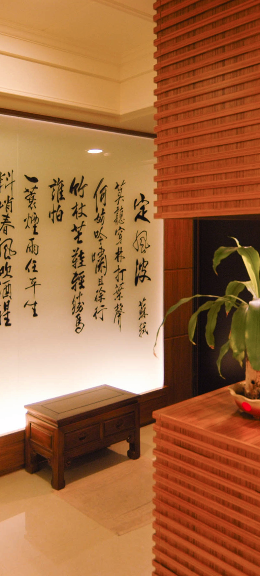 定風波 蘇軾
莫聽穿林打葉聲
何妨吟嘯且徐行
竹杖芒鞋輕勝馬
誰怕
一蓑煙雨任平生
料峭春風吹酒醒